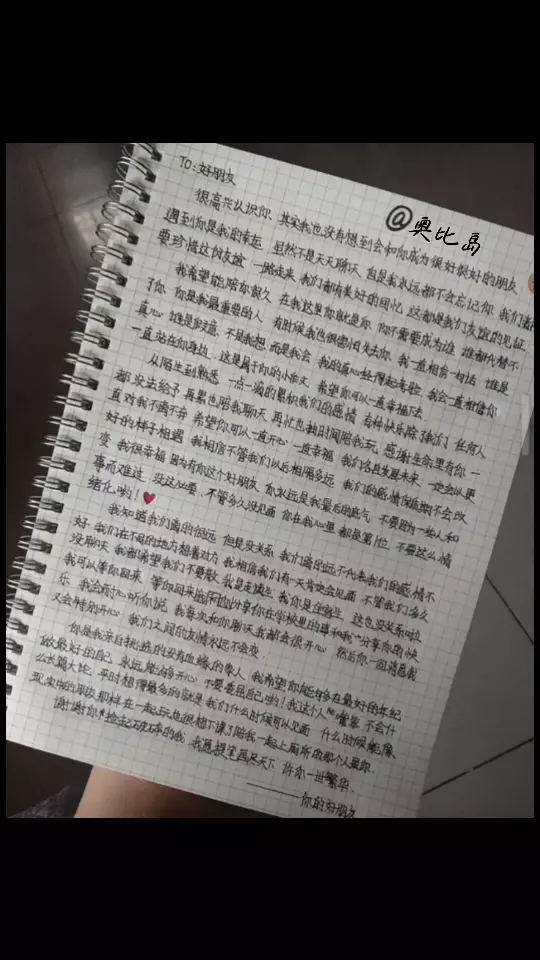 TO:好朋友
@奥比岛
很高兴认识你 其实我也没有想到会和你成为很好很好的朋友
遇到你是我的幸运 虽然不是天天聊天 但是我永远都不会忘记你 我们都
要珍惜这份友谊 一路走来 我们都有美好的回忆 这都是我们友谊的见证
我希望能陪你很久 在我这里你就是你 你不需要成为谁 谁都代替不
了你 你是我最重要的人 有时候我也很害怕失去你 我一直相信一句话 谁是
真心 谁是敷意 不是我想 而是我会 我的真心经得起考验 我会一直相信你
一直站在你身边 这是属于你的小作文 希望你可以一直幸福下去
从陌生到熟悉 一点一滴的累积我们的感情 有种快乐除了我们 任何人
都没法给予 再累也陪我聊天 再忙也抽时间陪我玩 感谢生命里有你 一
直对我不离不弃 希望你可以一直开心 一直幸福 我们各自发展未来 一定会以更
好的样子相遇 我相信不管我们以后相隔多远 我们的感情保质期不会改
变 我很幸福 因为有你这个好朋友 你永远是我最后的底气 不要因为一些人和
事而难过 没这必要 不管多久没见面 你在我心里都是第1位 不要这么情
绪化哟!
我知道我们离的很远 但是没关系 我们离的远不代表我们的感情不
好 我们在不同的地方想着对方 我相信我们有一天肯定会见面 不管我们多久
没聊天 我都希望我们不要散 我是走读生 我你是住宿生 这也没关系啦
我可以等你回来 等你回来给你分享你在学校里的事和我一分享你的快
乐 我会耐心听你说 我每次和你聊天我都会很开心 然后你一回消息我
又会特别开心 我们之间的友情永远不会变
你是我亲自挑选的没有血缘的家人 我希望你能够在最好的年纪
做最好的自己 永远能够开心 不要委屈自己哟! 我这个人吧 嘴笨 不会什
么长篇大论 平时想得最多的就是我们什么时候可以见面 什么时候能像
现实中的朋友那样在一起玩 也很想下课了陪我一起上厕所的那个人是你
谢谢你 我愿提笔画尽天下 许你一世繁华
——你的好朋友